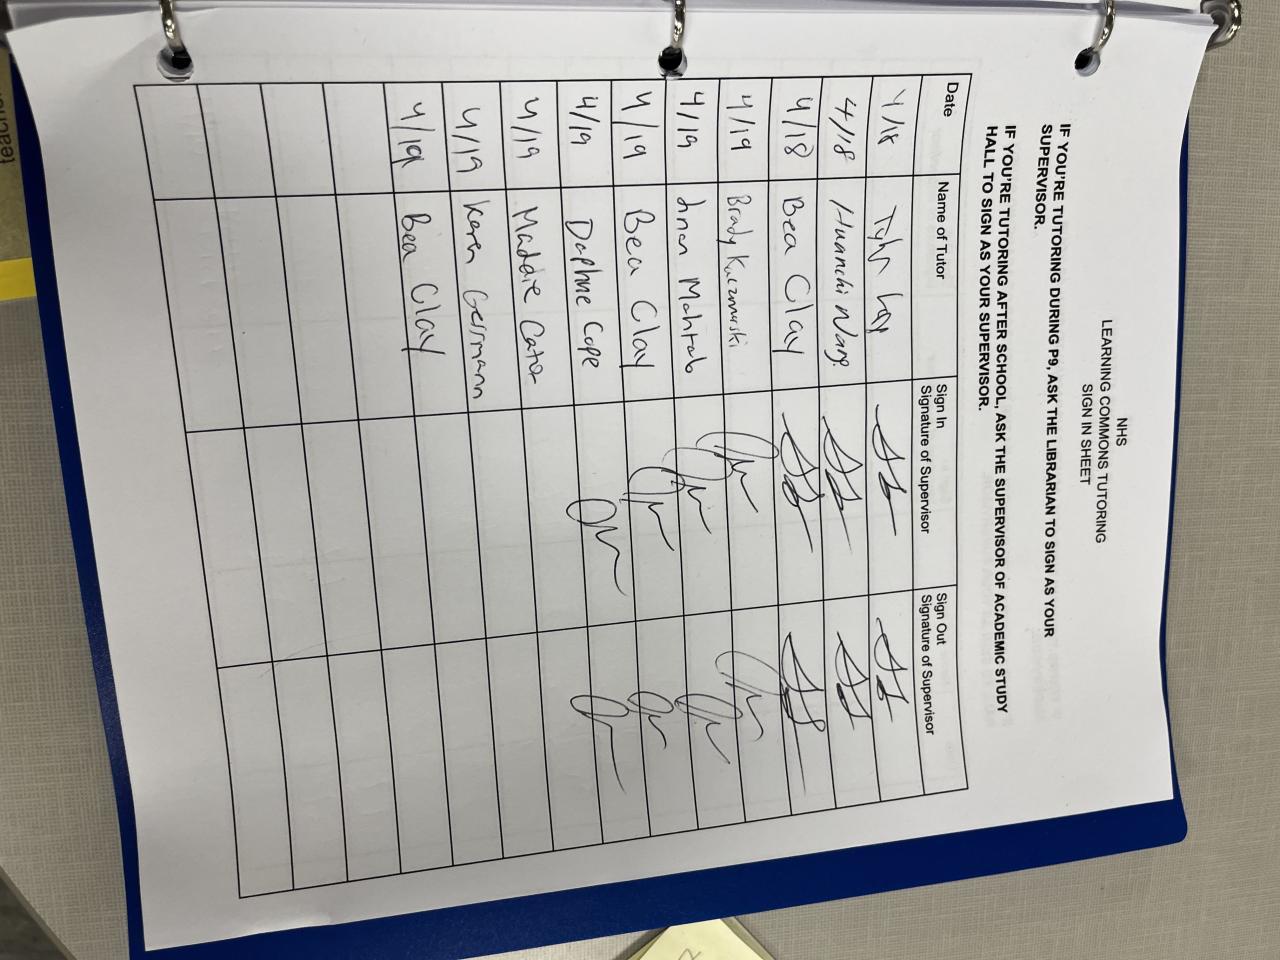 NHS
LEARNING COMMONS TUTORING
SIGN IN SHEET
IF YOU'RE TUTORING DURING P9, ASK THE LIBRARIAN TO SIGN AS YOUR
SUPERVISOR.
IF YOU'RE TUTORING AFTER SCHOOL, ASK THE SUPERVISOR OF ACADEMIC STUDY
HALL TO SIGN AS YOUR SUPERVISOR.
Date Name of Tutor Sign In Signature of Supervisor Sign Out Signature of Supervisor
4/18
4/18 Huanchi Wang
4/18 Bea Clay
4/19 Brady Kaczmarski
4/19 Mahtab
4/19 Bea Clay
4/19 Daphne Cope
4/19 Maddie Cator
4/19 Karen Germann
4/19 Bea Clay